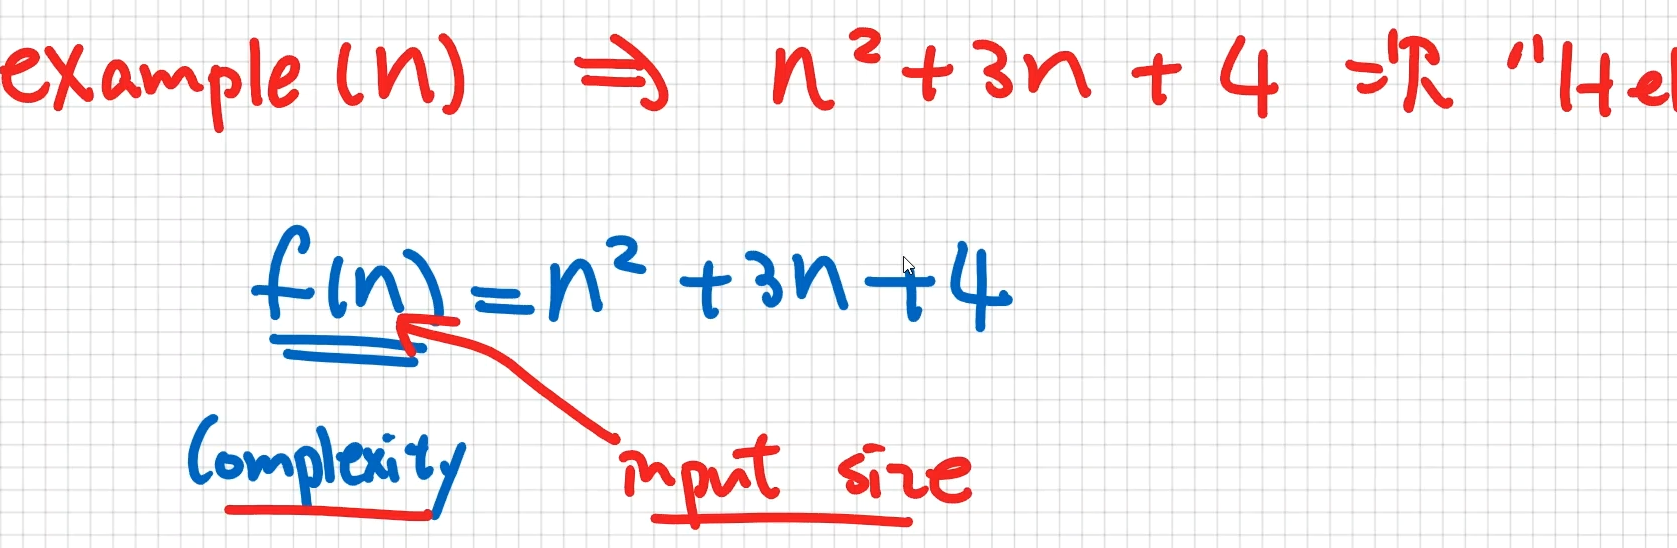 example(n) ⇒ n² + 3n + 4 ⇒ "Hel
f(n) = n² + 3n + 4
Complexity input size